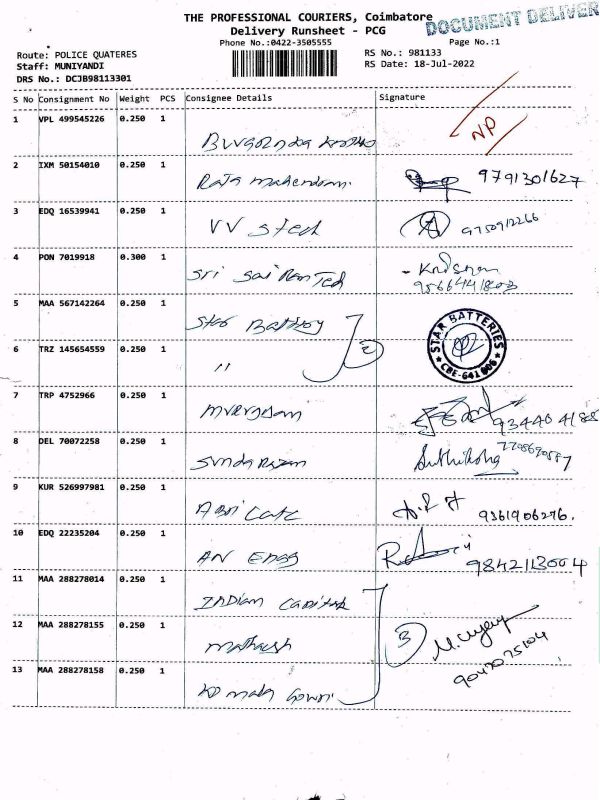 THE PROFESSIONAL COURIERS, Coimbatore
DOCUMENT DELIVER
Delivery Runsheet - PCG
Phone No.:0422-3505555
Page No.:1
Route: POLICE QUATERES
RS No.: 981133
Staff: MUNIYANDI
RS Date: 18-Jul-2022
DRS No.: DCJB98113301
S No Consignment No Weight PCS Consignee Details Signature
1 VPL 499545226 0.250 1 NP
2 IXM 50154010 0.250 1 Raja mahendran 9791301627
3 EDQ 16539941 0.250 1 VV Stech 9750912266
4 PON 7019918 0.300 1 Sri Sai Ram Ted
5 MAA 567142264 0.250 1 Star Battery
STAR BATTERIES
CBE-641 006
6 TRZ 145654559 0.250 1 " 2
7 TRP 4752966 0.250 1 934404188
8 DEL 70072258 0.250 1 Sundarajan
9 KUR 526997981 0.250 1 9361906276.
10 EDQ 22235204 0.250 1 AN Engg 9842113004
11 MAA 288278014 0.250 1 Indian
12 MAA 288278155 0.250 1 Mahesh 3
13 MAA 288278158 0.250 1 Komala Gowri 9047075104